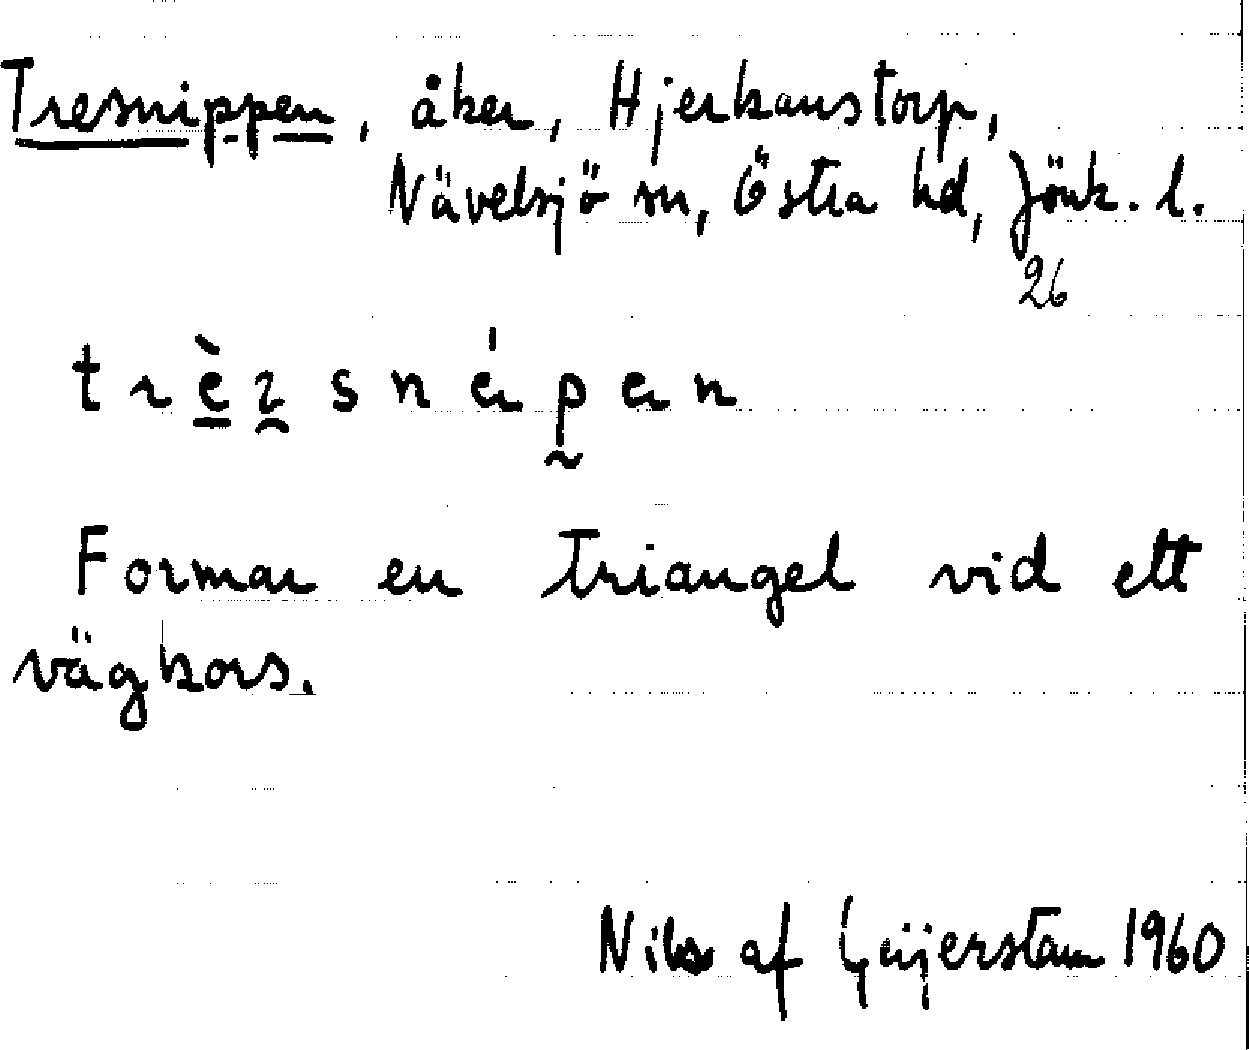 Tresnippen, åker, Hjerkanstorp,
Nävelsjö sn, Östra hd, Jönk. l.
26
Formar en triangel vid ett
vägkors.
Nils af Geijerstam 1960